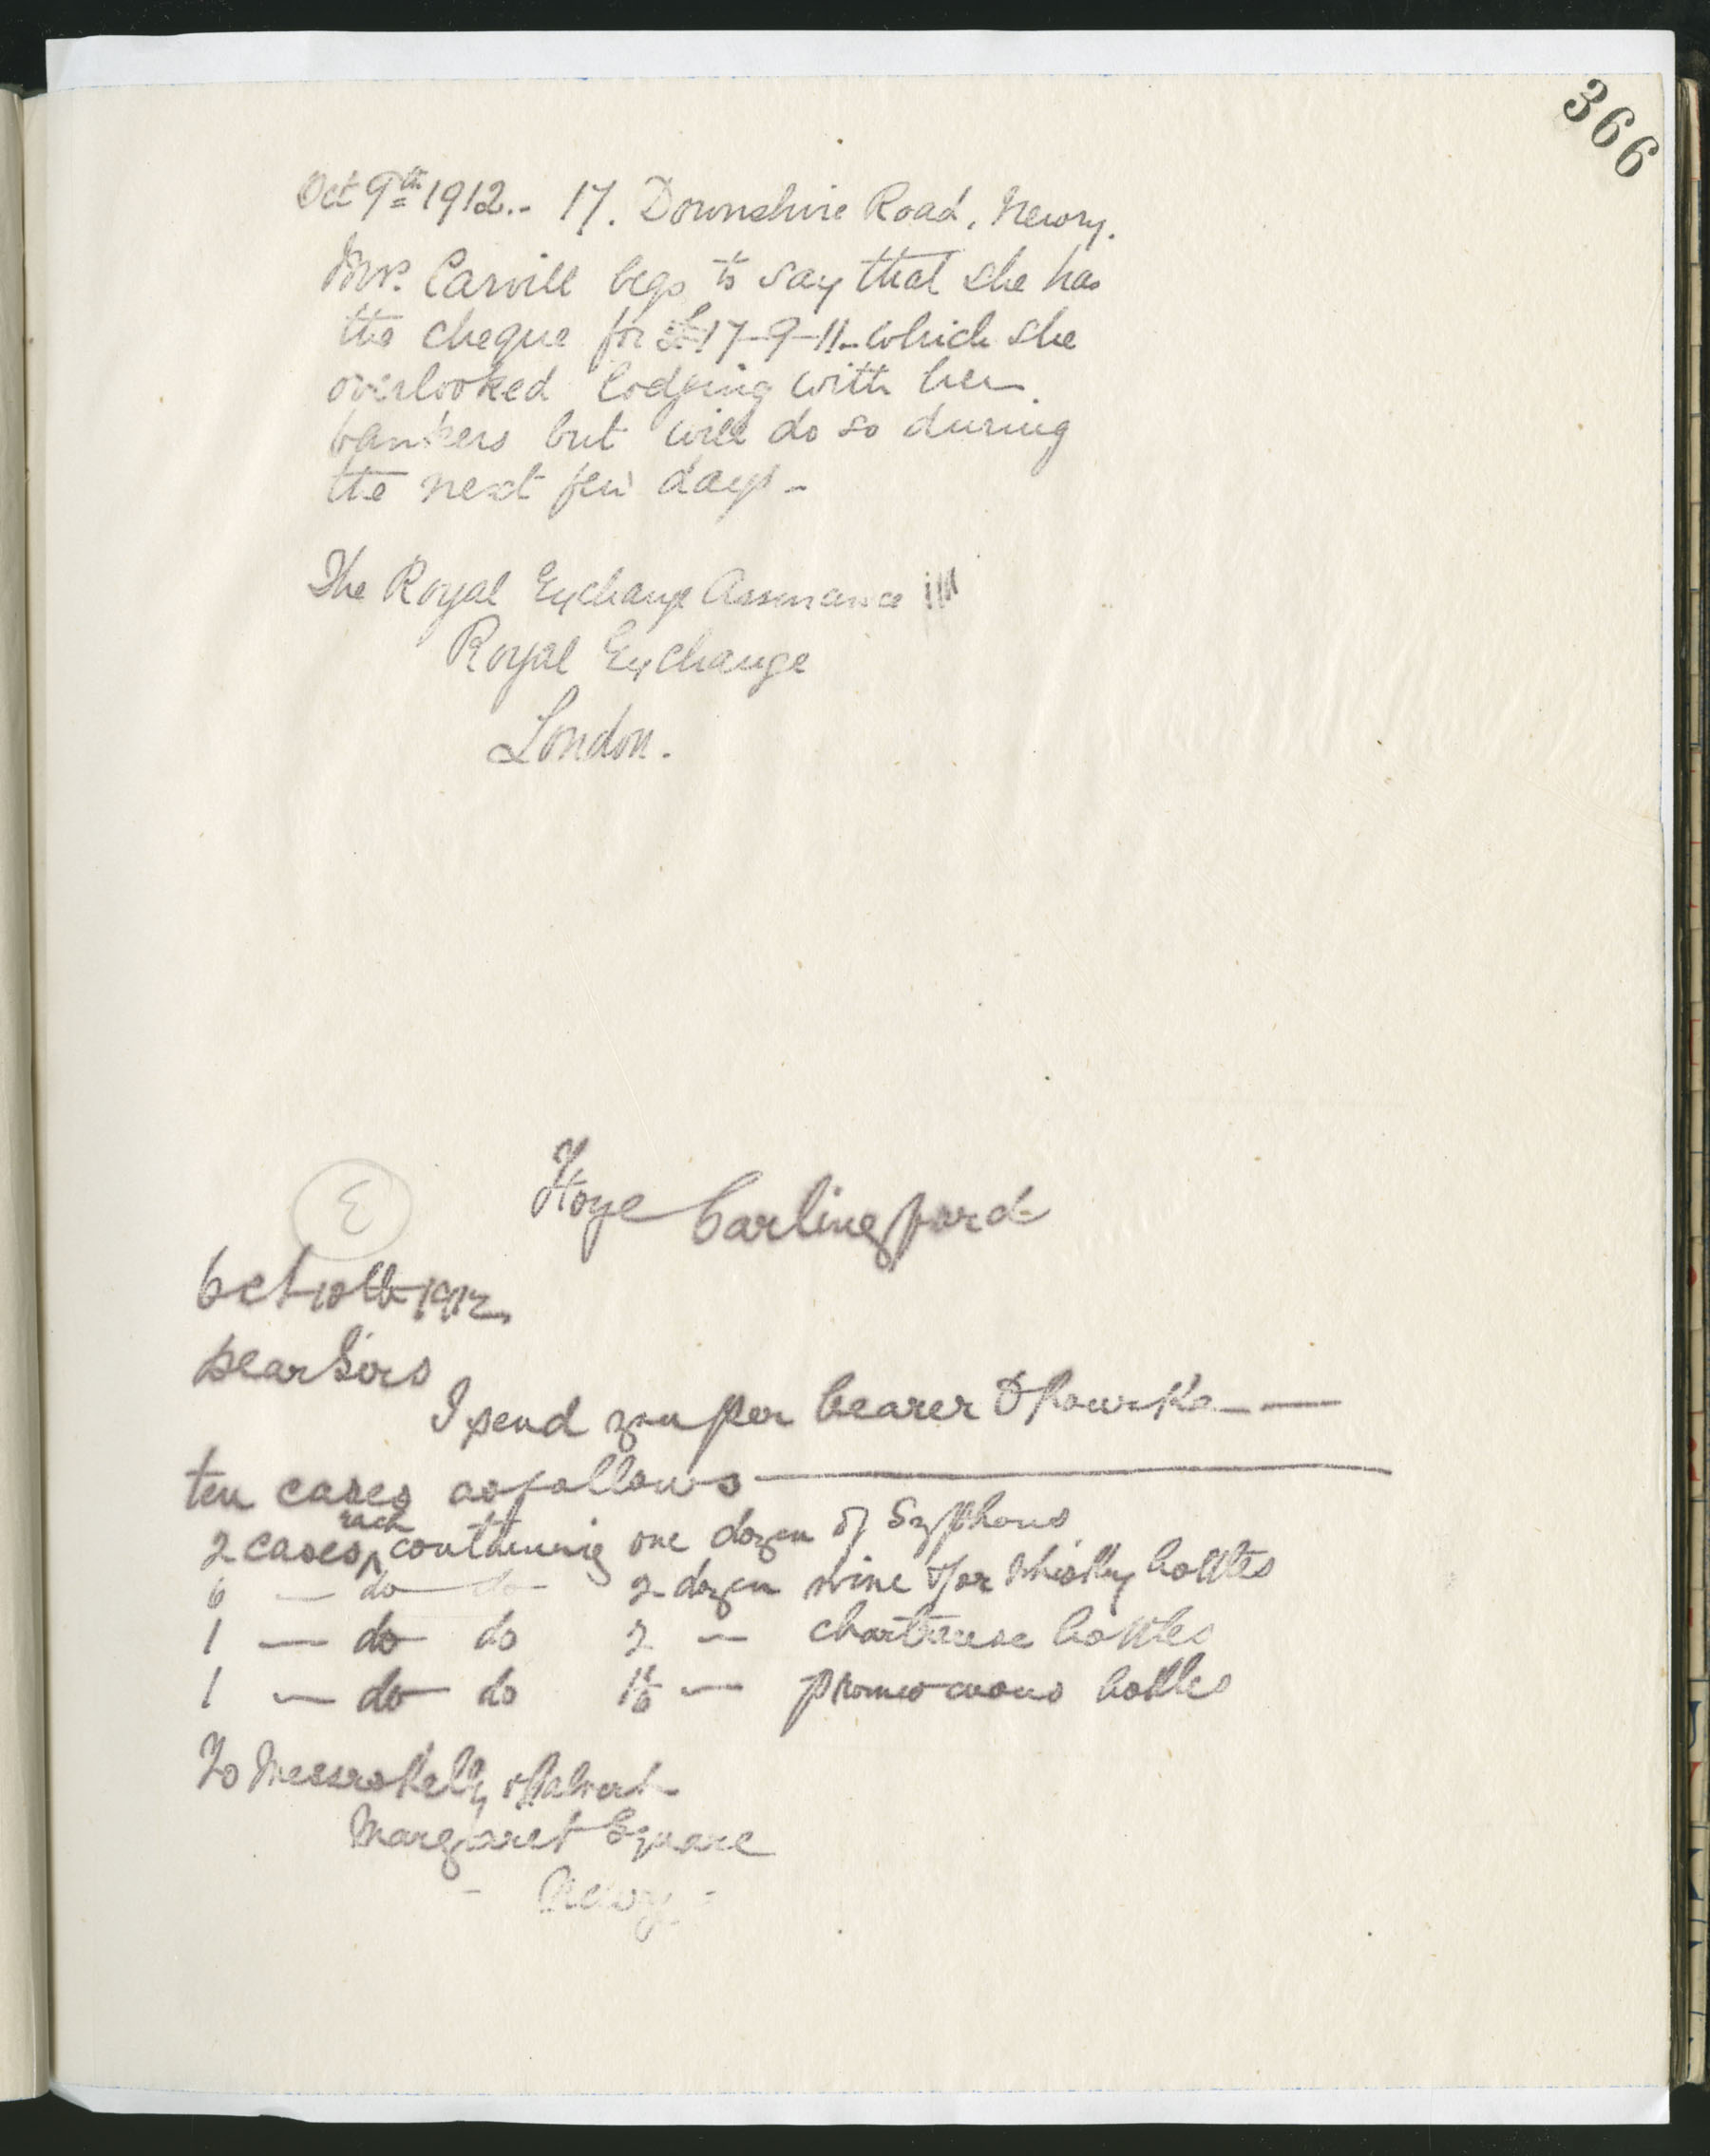 366
Oct 9th 1912.- 17. Downshire Road, Newry.
Mrs. Carvill begs to say that she has
the cheque for £17-9-11- which she
overlooked lodging with her
bankers but will do so during
the next few days -
The Royal Exchange Assurance
Royal Exchange
London.
Carlingford
Oct 10th 1912
Dear Sirs
I send you per bearer
ten cases as follows
2 cases each containing one dozen of Syphons
6 — do — do — 2 dozen wine &/or Whisky bottles
1 — do do 2 — chartreuse bottles
1 — do do — bottles
To Messrs Kelly &
Margaret Square
- Newry -